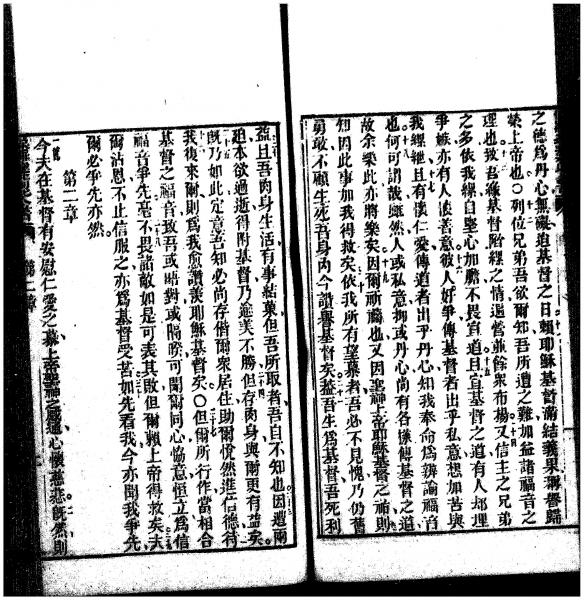 之德爲丹心無礙迨基督之日賴耶穌基督滿結義果
榮上帝也〇列位兄弟吾欲爾知吾所遭之難加益諸福音之
理也致吾爲基督附縲之情遏當並餘衆布揚又信主之兄弟
之多依我縲自堅心加膽不畏宣道且宣基督之道有人
爭嫉亦有人懷善意彼人好爭傳基督者出乎私意想加苦與
我縲絏且有僕仁愛傳道者出乎丹心知我奉命爲辨諭福音
也何可謂哉雖然人或私意抑或丹心尚有各樣傳基督之道
故余樂此亦將樂矣因爾祈禱也又因聖神上帝耶穌基督之祐則
知因此事加我得救矣依我所有望慕者吾必不見愧乃仍舊
勇敢不顧生死吾身內今讚舉基督矣蓋吾生爲基督吾死利
益且吾肉身生活有事結菓但吾所取者吾自不知也因遭兩
迫本欲過逝得附基督乃逾美不勝但存肉身與爾更有益矣
旣乃如此定意吾知必尚存偕爾衆居住助爾悅然進信德待
我復來爾則爲我愈讚美耶穌基督矣〇但爾所行作當相合
基督之福音致吾或晤對或隔睽可聞爾同心協意恒立爲信
福音爭先毫不畏諸敵如是可表其敗但爾賴上帝得救矣夫
爾沾恩不止信服之亦爲基督受苦如先看我今亦聞我爭先
爾必爭先亦然
第二章
今夫在基督有安慰仁愛之慕上帝聖神之感通心懷慈悲旣然則